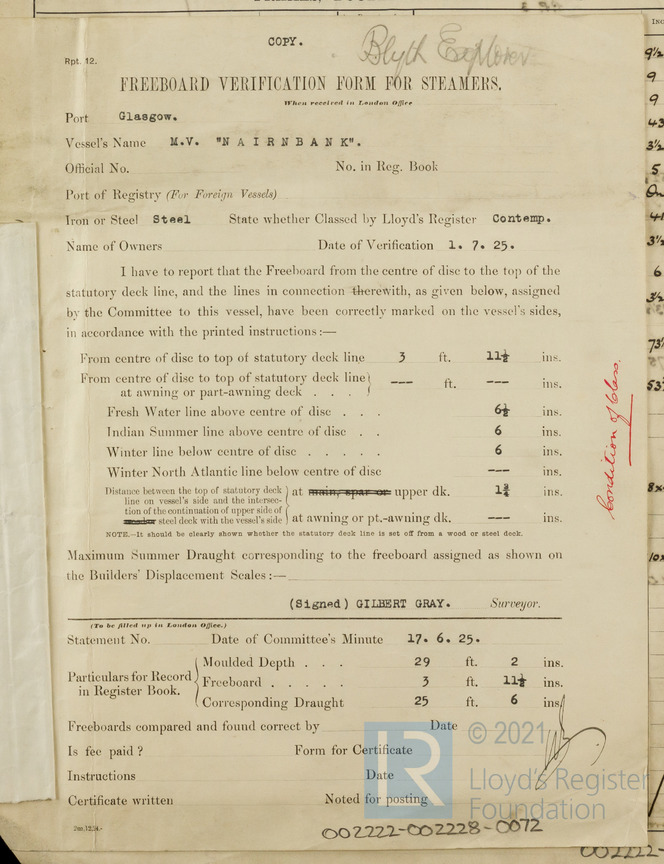 COPY.
Blyth Explorer
Rpt. 12.
FREEBOARD VERIFICATION FORM FOR STEAMERS.
When received in London Office
Port Glasgow.
Vessel's Name M.V. "NAIRNBANK".
Official No. No. in Reg. Book
Port of Registry (For Foreign Vessels)
Iron or Steel Steel State whether Classed by Lloyd's Register Contemp.
Name of Owners Date of Verification 1. 7. 25.
I have to report that the Freeboard from the centre of disc to the top of the
statutory deck line, and the lines in connection therewith, as given below, assigned
by the Committee to this vessel, have been correctly marked on the vessel's sides,
in accordance with the printed instructions:—
From centre of disc to top of statutory deck line 3 ft. 11½ ins.
From centre of disc to top of statutory deck line
at awning or part-awning deck . . . --- ft. --- ins.
Fresh Water line above centre of disc . . . 6½ ins.
Indian Summer line above centre of disc . . 6 ins.
Winter line below centre of disc . . . . . 6 ins.
Winter North Atlantic line below centre of disc --- ins.
Distance between the top of statutory deck
line on vessel's side and the intersec-
tion of the continuation of upper side of
steel deck with the vessel's side
at main, spar or upper dk. 1¾ ins.
at awning or pt.-awning dk. --- ins.
NOTE.—It should be clearly shown whether the statutory deck line is set off from a wood or steel deck.
Maximum Summer Draught corresponding to the freeboard assigned as shown on
the Builders' Displacement Scales:—
(Signed) GILBERT GRAY. Surveyor.
(To be filled up in London Office.)
Statement No. Date of Committee's Minute 17. 6. 25.
Particulars for Record
in Register Book.
Moulded Depth . . . 29 ft. 2 ins.
Freeboard . . . . . 3 ft. 11½ ins.
Corresponding Draught 25 ft. 6 ins.
Freeboards compared and found correct by Date
Is fee paid? Form for Certificate
Instructions Date
Certificate written Noted for posting
2m,12,24.-
002222-002228-0072
Condition of Class.
© 2021
LR
Lloyd's Register
Foundation
9½
9
9
43
3½
5
On
41
3½
6
3½
73½
53
8x
10x
002222-